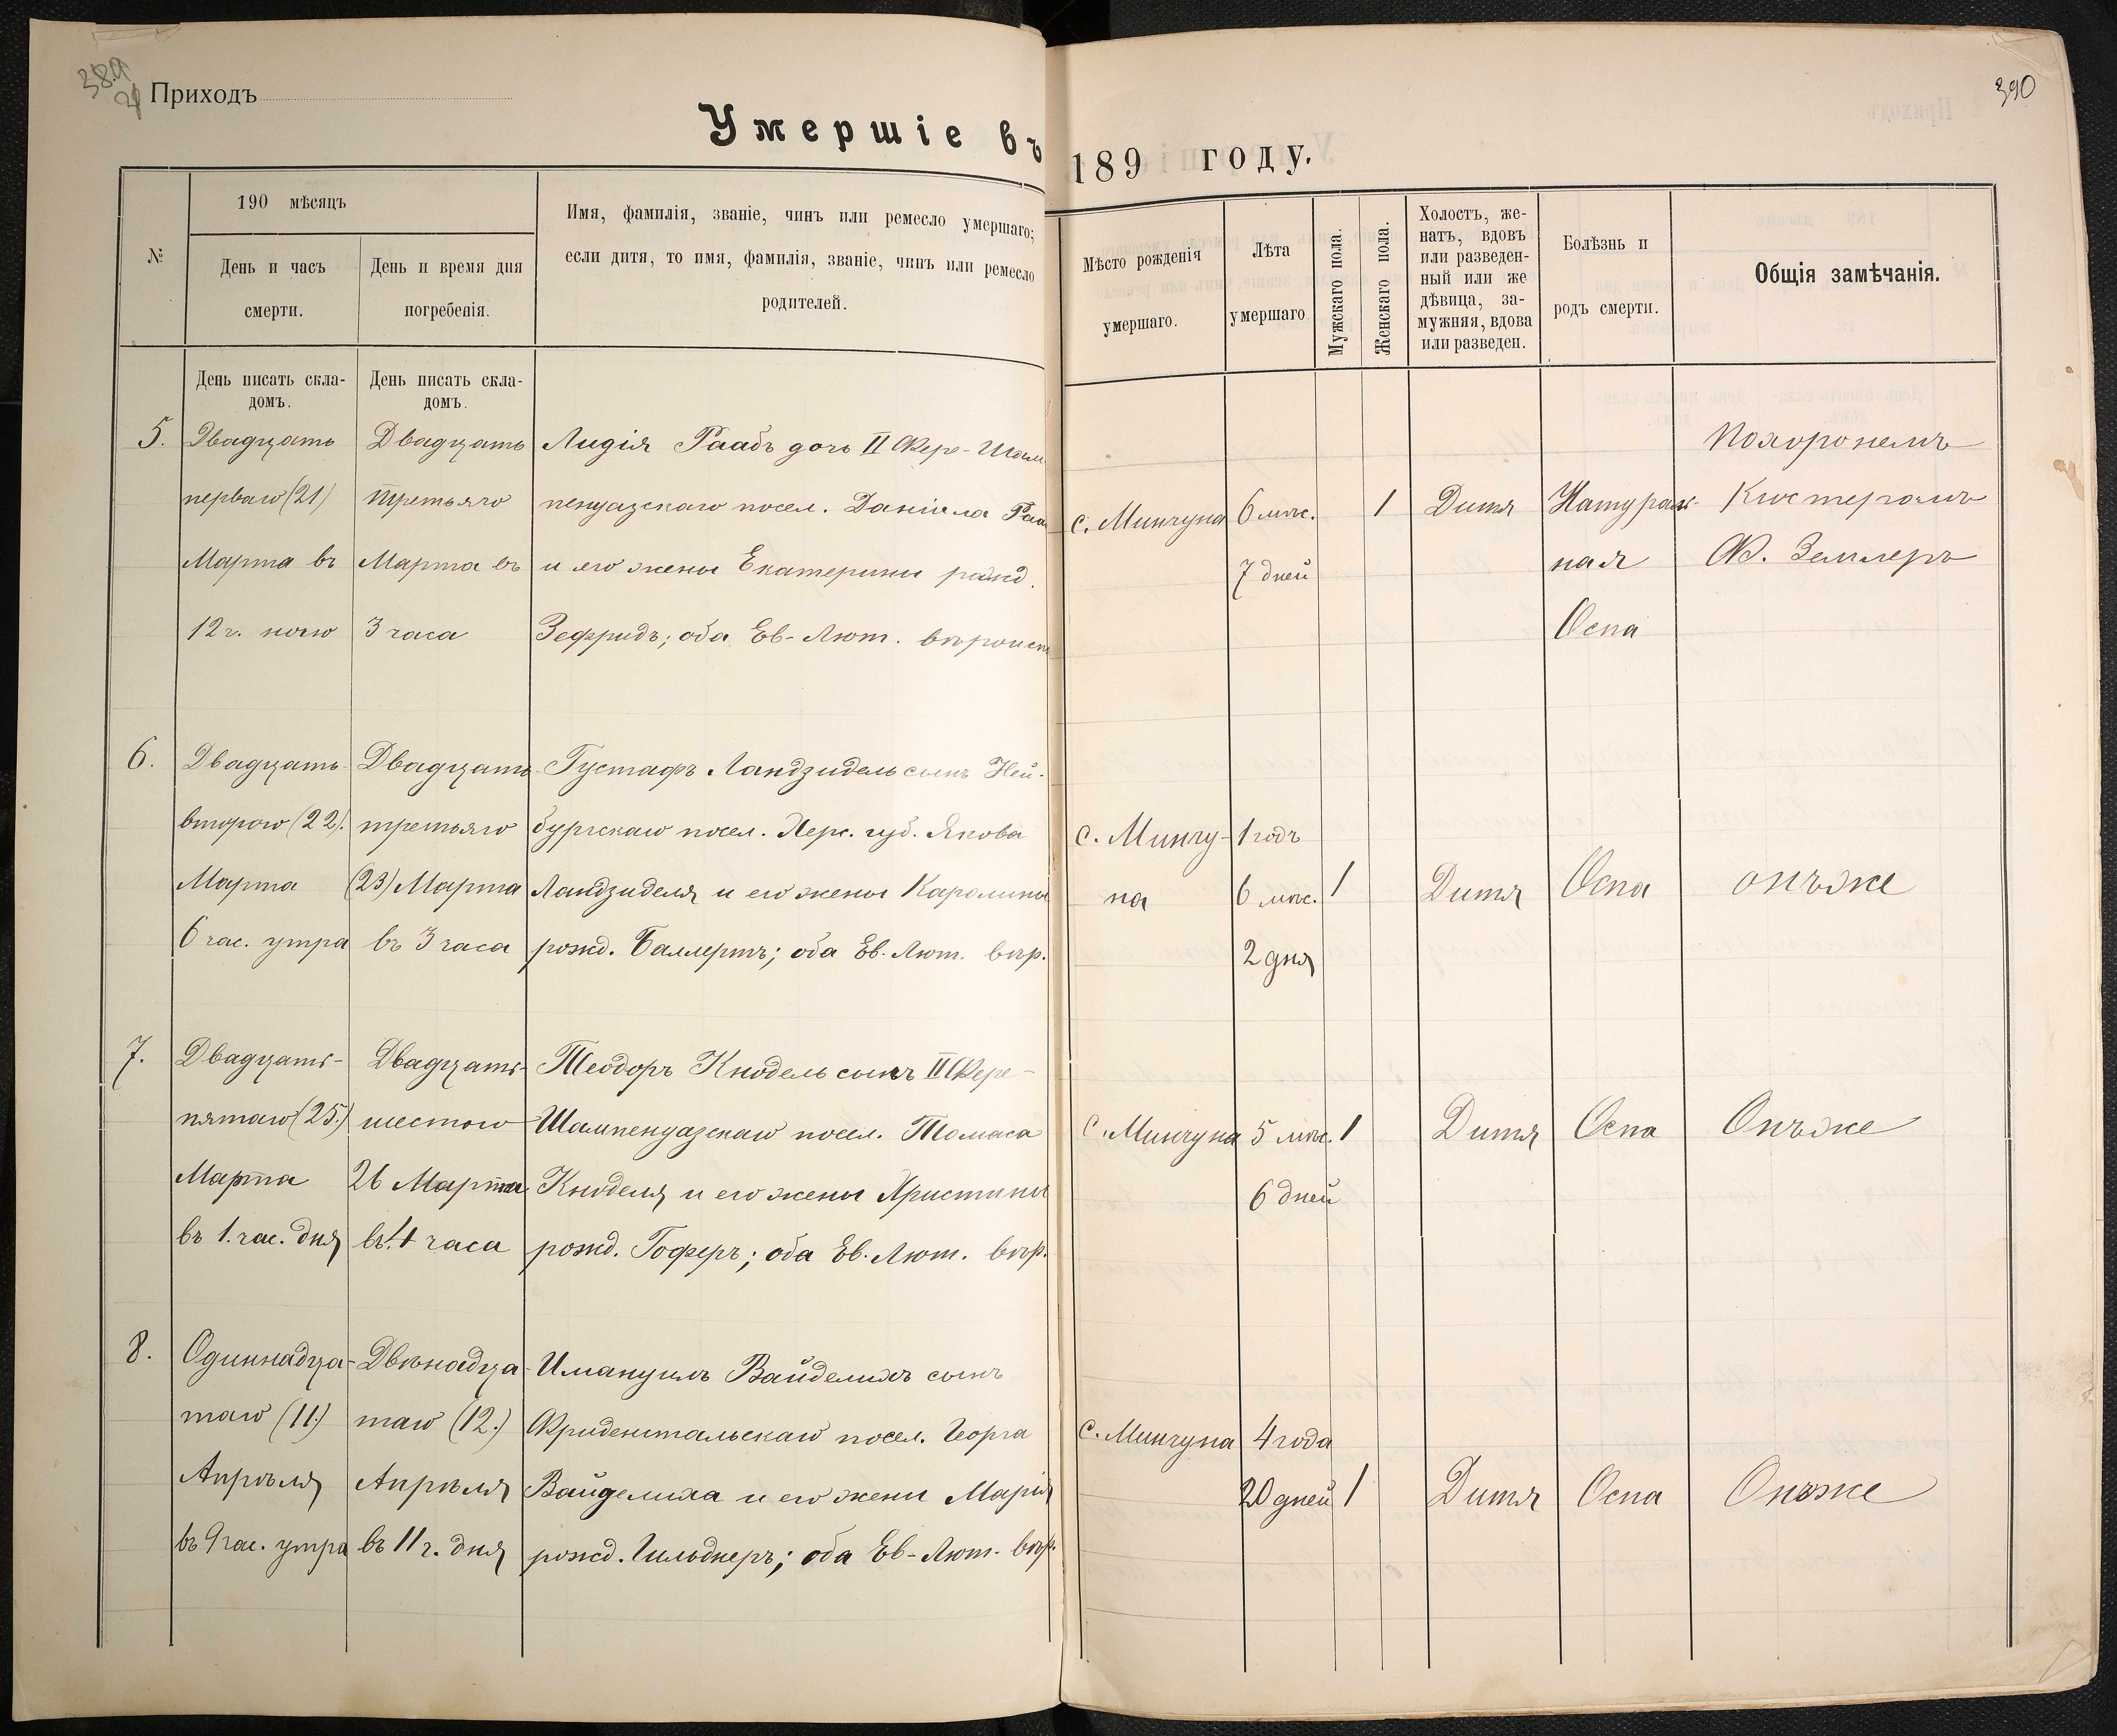 389
Приходъ
390
Умершіе въ 189 году.
№
190 мѣсяцъ
День и часъ смерти.
День и время дня погребенія.
Имя, фамилія, званіе, чинъ или ремесло умершаго;
если дитя, то имя, фамилія, званіе, чинъ или ремесло
родителей.
Мѣсто рожденія умершаго.
Лѣта умершаго
Мужскаго пола.
Женскаго пола.
Холостъ, же-
натъ, вдовъ
или разведен-
ный или же
дѣвица, за-
мужняя, вдова
или разведен.
Болѣзнь и родъ смерти.
Общія замѣчанія.
День писать скла-
домъ.
День писать скла-
домъ.
5.
Двадцать
перваго (21)
Марта въ
12 ч. ночю
Двадцать
третьяго
Марта въ
3 часа
Лидія Раабъ дочь II Фере-Шам
пенуазскаго посел. Даніила Раа
и его жены Екатерины рожд.
Зефридъ; оба Ев-Лют. вѣроисп
с. Минчуна
6 мѣс.
7 дней
1
Дитя
Натураль-
ная
Оспа
Похороненъ
Кюстеромъ
Ф. Земмеръ
6.
Двадцать
второго (22).
Марта
6 час. утра
Двадцать
третьяго
(23) Марта
въ 3 часа
Густафъ Ландзидель сынъ Ней-
бургскаго посел. Херс. губ. Якова
Ландзиделя и его жены Каролины
рожд. Баллертъ; оба Ев. Лют. вѣр.
с. Минчу-
на
1 годъ
6 мѣс.
2 дня
1
Дитя
Оспа
онъже
7.
Двадцать-
пятаго (25.)
Марта
въ 1. час. дня
Двадцать-
шестого
26 Марта
въ 4 часа
Теодоръ Кнодель сынъ II Фере-
Шампенуазскаго посел. Томаса
Кноделя и его жены Христины
рожд. Гоферъ; оба Ев. Лют. вѣр.
С. Минчуна
5 мѣс.
6 дней
1
Дитя
Оспа
Онъже
8.
Одиннадца-
таго (11.)
Апрѣля
въ 9 час. утра
Двѣнадца-
таго (12.)
Апрѣля
въ 11 ч. дня
Имануилъ Вайделихъ сынъ
Фриденстальскаго посел. Георга
Вайделиха и его жены Марія
рожд. Гильднеръ; оба Ев-Лют. вѣр.
С. Минчуна
4 года
20 дней
1
Дитя
Оспа
Онъже